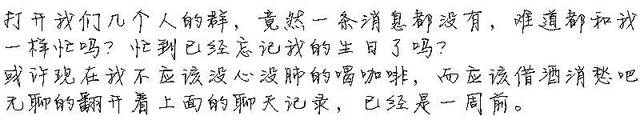 打开我们几个人的群，竟然一条消息都没有，难道都和我
一样忙吗？忙到已经忘记我的生日了吗？
或许现在我不应该没心没肺的喝咖啡，而应该借酒消愁吧
无聊的翻开着上面的聊天记录，已经是一周前。